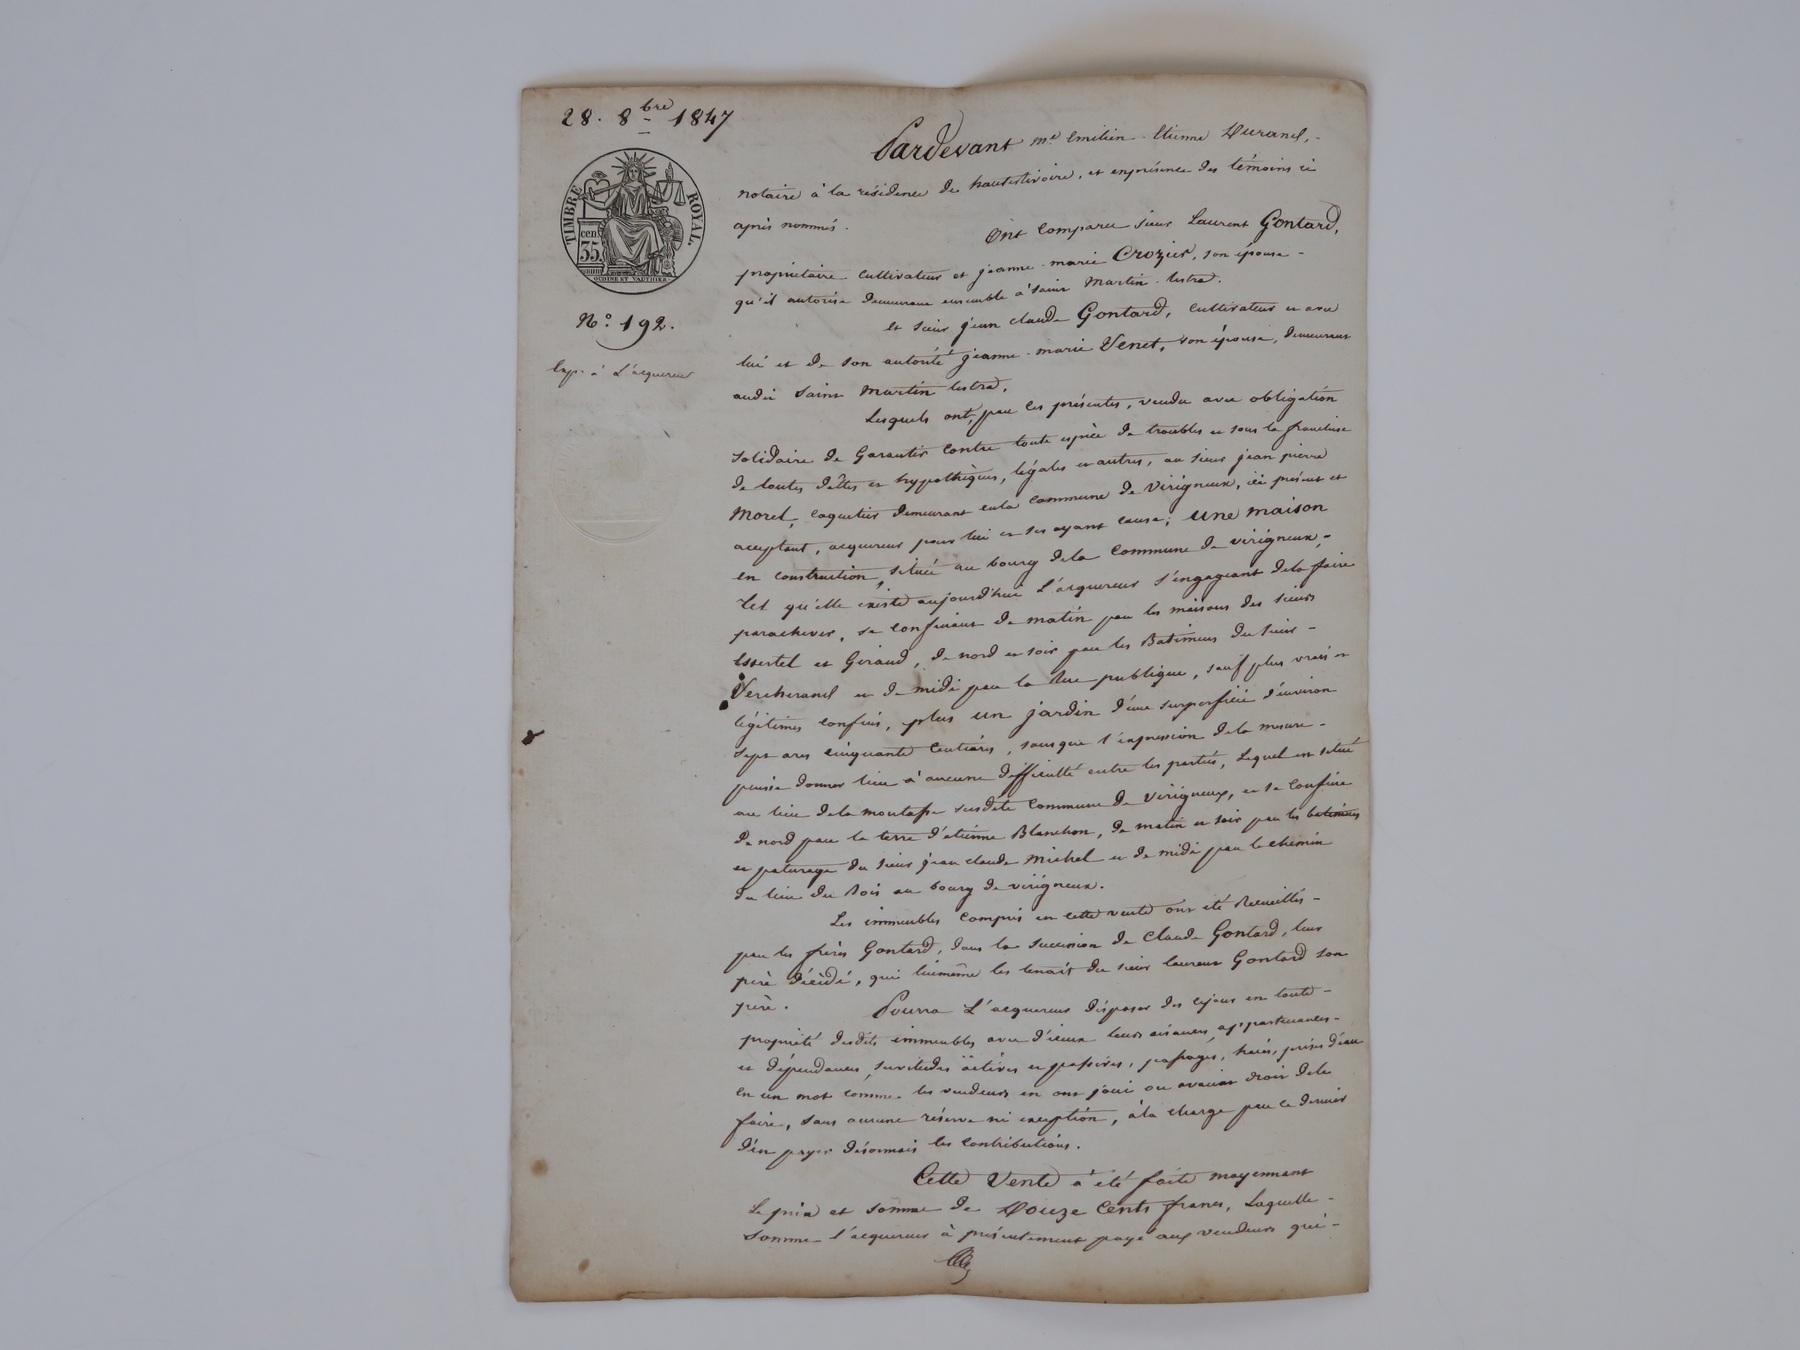 28. 8bre 1847
TIMBRE ROYAL.
cen. 35.
N.o 192.
Exp. à L'acquereur
Pardevant me Emilien Etienne Durand,
notaire à la résidence de hauterivoire, et en présence des témoins ci
après nommés.
Ont comparu sieur Laurent Gontard,
propriétaire cultivateur et jeanne marie Crozier, son épouse
qu'il autorise demeurant ensemble à saint Martin lestra.
et sieur jean claude Gontard, cultivateur et avec
lui et de son autorité jeanne marie Venet, son épouse, demeurant
audit saint Martin lestra.
Lesquels ont, par ces présentes, vendu avec obligation
solidaire de Garantir contre toute espèce de troubles et sous la franchise
de toutes dettes et hypothèques, légales et autres, au sieur jean pierre
Morel, coquetier demeurant en la commune de virigneux, ici présent et
acceptant, acquereur pour lui et ses ayant cause; une maison
en construction, située au bourg de la commune de virigneux,
tel qu'elle existe aujourd'hui L'acquereur s'engageant de la faire
parachever, se confinant de matin par les maisons des sieurs
et Giraud, de nord et soir par les Batimens du sieur
Vercherand et de midi par la Rue publique, sauf plus vrais et
légitimes confins, plus un jardin d'une surperficie d'environ
sept ares cinquante centiares, sans que l'expression de la mesure
puisse donner lieu à aucune difficulté entre les parties, Lequel est situé
au lieu de la susdite commune de virigneux, et se confine
de nord par la terre d'etienne Blanchon, de matin et soir par les batimens
et paturage du sieur jean claude Michel et de midi par le chemin
du lieu du Bois au bourg de virigneux.
Les immeubles compris en cette vente ont été Recueillis
par les frères Gontard, dans la succession de Claude Gontard, leur
père décédé, qui lui même les tenait du sieur laurent Gontard son
père. Pourra L'acquereur disposer dès ce jour en toute
propriété desdits immeubles avec d'iceux leurs aisances, appartenances
et dépendances, servitudes actives et passives, passages, haies, prises d'eau
en un mot comme les vendeurs en ont joui ou avaient droit de le
faire, sans aucune réserve ni exception, à la charge par ce dernier
d'en payer désormais les contributions.
Cette Vente a été faite moyennant
Le prix et somme de Douze Cents francs, Laquelle
somme l'acquereur à présentement payé aux vendeurs qui